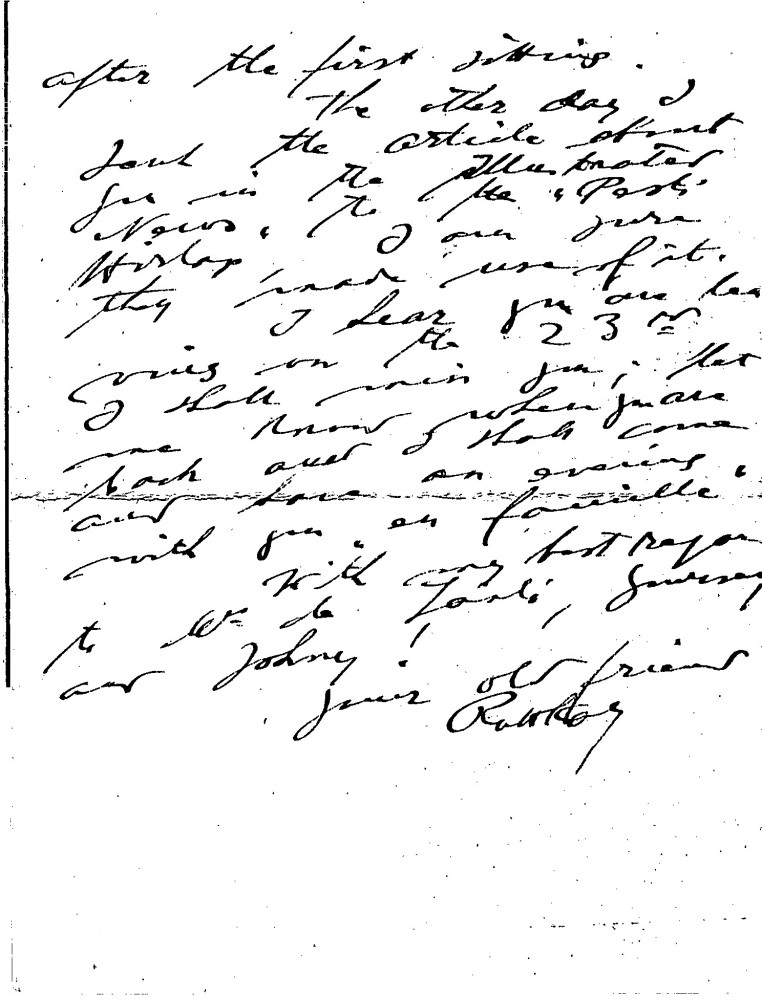 after the first sitting.
The other day I
sent the article about
you in the Illustrated
News, to the "Pesti
Hirlap", I am sure
they made use of it.
I hear you are lea
ving on the 23rd
I shall miss you; let
me know when you are
back and I shall come
and have an evening
with you "en famille"
With my best regar
to Mrs de László, yourself
and Johny!
your old friend